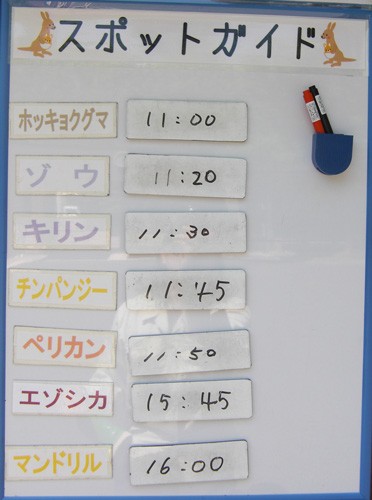 スポットガイド
ホッキョクグマ 11:00
ゾウ 11:20
キリン 11:30
チンパンジー 11:45
ペリカン 11:50
エゾシカ 15:45
マンドリル 16:00